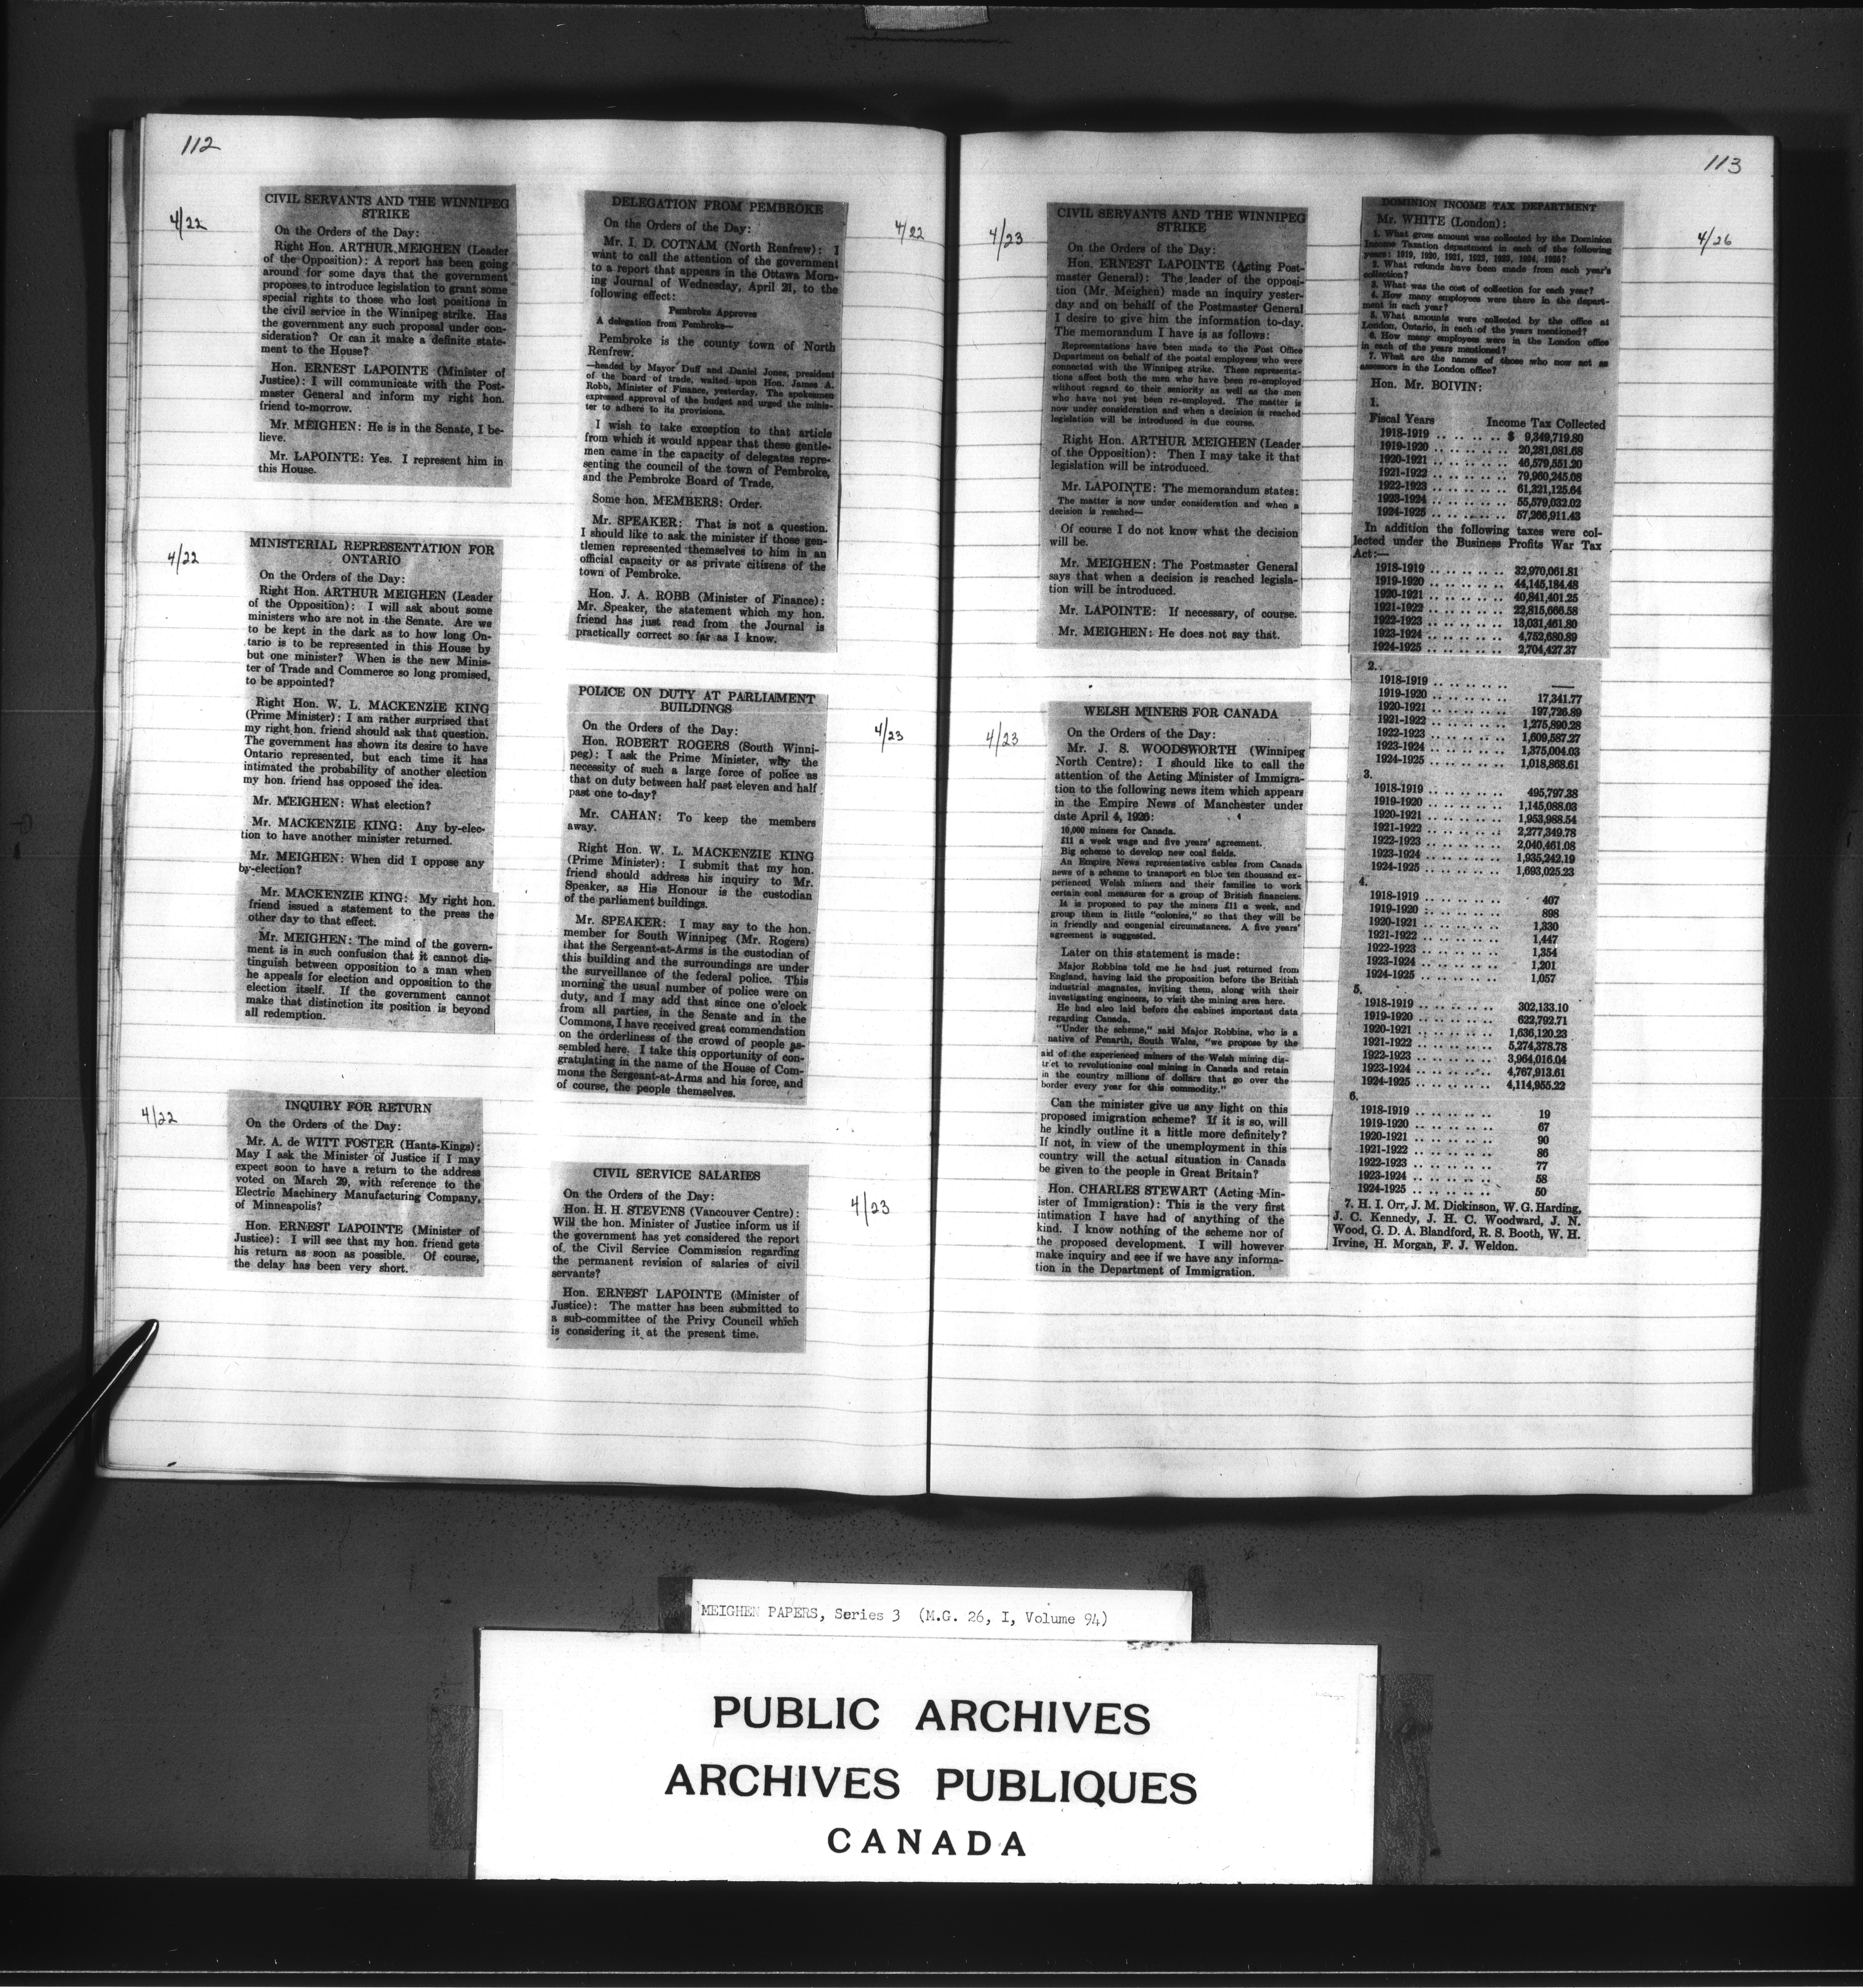 112
4/22
CIVIL SERVANTS AND THE WINNIPEG
STRIKE
On the Orders of the Day:
Right Hon. ARTHUR MEIGHEN (Leader
of the Opposition): A report has been going
around for some days that the government
proposes to introduce legislation to grant some
special rights to those who lost positions in
the civil service in the Winnipeg strike. Has
the government any such proposal under con-
sideration? Or can it make a definite state-
ment to the House?
Hon. ERNEST LAPOINTE (Minister of
Justice): I will communicate with the Post-
master General and inform my right hon.
friend to-morrow.
Mr. MEIGHEN: He is in the Senate, I be-
lieve.
Mr. LAPOINTE: Yes. I represent him in
this House.
4/22
MINISTERIAL REPRESENTATION FOR
ONTARIO
On the Orders of the Day:
Right Hon. ARTHUR MEIGHEN (Leader
of the Opposition): I will ask about some
ministers who are not in the Senate. Are we
to be kept in the dark as to how long On-
tario is to be represented in this House by
but one minister? When is the new Minis-
ter of Trade and Commerce so long promised,
to be appointed?
Right Hon. W. L. MACKENZIE KING
(Prime Minister): I am rather surprised that
my right hon. friend should ask that question.
The government has shown its desire to have
Ontario represented, but each time it has
intimated the probability of another election
my hon. friend has opposed the idea.
Mr. MEIGHEN: What election?
Mr. MACKENZIE KING: Any by-elec-
tion to have another minister returned.
Mr. MEIGHEN: When did I oppose any
by-election?
Mr. MACKENZIE KING: My right hon.
friend issued a statement to the press the
other day to that effect.
Mr. MEIGHEN: The mind of the govern-
ment is in such confusion that it cannot dis-
tinguish between opposition to a man when
he appeals for election and opposition to the
election itself. If the government cannot
make that distinction its position is beyond
all redemption.
4/22
INQUIRY FOR RETURN
On the Orders of the Day:
Mr. A. de WITT FOSTER (Hants-Kings):
May I ask the Minister of Justice if I may
expect soon to have a return to the address
voted on March 29, with reference to the
Electric Machinery Manufacturing Company,
of Minneapolis?
Hon. ERNEST LAPOINTE (Minister of
Justice): I will see that my hon. friend gets
his return as soon as possible. Of course,
the delay has been very short.
4/22
DELEGATION FROM PEMBROKE
On the Orders of the Day:
Mr. I. D. COTNAM (North Renfrew): I
want to call the attention of the government
to a report that appears in the Ottawa Morn-
ing Journal of Wednesday, April 21, to the
following effect:
Pembroke Approves
A delegation from Pembroke—
Pembroke is the county town of North
Renfrew.
—headed by Mayor Duff and Daniel Jones, president
of the board of trade, waited upon Hon. James A.
Robb, Minister of Finance, yesterday. The spokesmen
expressed approval of the budget and urged the minis-
ter to adhere to its provisions.
I wish to take exception to that article
from which it would appear that these gentle-
men came in the capacity of delegates repre-
senting the council of the town of Pembroke,
and the Pembroke Board of Trade,
Some hon. MEMBERS: Order.
Mr. SPEAKER: That is not a question.
I should like to ask the minister if those gen-
tlemen represented themselves to him in an
official capacity or as private citizens of the
town of Pembroke.
Hon. J. A. ROBB (Minister of Finance):
Mr. Speaker, the statement which my hon.
friend has just read from the Journal is
practically correct so far as I know.
4/23
POLICE ON DUTY AT PARLIAMENT
BUILDINGS
On the Orders of the Day:
Hon. ROBERT ROGERS (South Winni-
peg): I ask the Prime Minister, why the
necessity of such a large force of police as
that on duty between half past eleven and half
past one to-day?
Mr. CAHAN: To keep the members
away.
Right Hon. W. L. MACKENZIE KING
(Prime Minister): I submit that my hon.
friend should address his inquiry to Mr.
Speaker, as His Honour is the custodian
of the parliament buildings.
Mr. SPEAKER: I may say to the hon.
member for South Winnipeg (Mr. Rogers)
that the Sergeant-at-Arms is the custodian of
this building and the surroundings are under
the surveillance of the federal police. This
morning the usual number of police were on
duty, and I may add that since one o'clock
from all parties, in the Senate and in the
Commons, I have received great commendation
on the orderliness of the crowd of people as-
sembled here. I take this opportunity of con-
gratulating in the name of the House of Com-
mons the Sergeant-at-Arms and his force, and
of course, the people themselves.
4/23
CIVIL SERVICE SALARIES
On the Orders of the Day:
Hon. H. H. STEVENS (Vancouver Centre):
Will the hon. Minister of Justice inform us if
the government has yet considered the report
of the Civil Service Commission regarding
the permanent revision of salaries of civil
servants?
Hon. ERNEST LAPOINTE (Minister of
Justice): The matter has been submitted to
a sub-committee of the Privy Council which
is considering it at the present time.
113
4/23
CIVIL SERVANTS AND THE WINNIPEG
STRIKE
On the Orders of the Day:
Hon. ERNEST LAPOINTE (Acting Post-
master General): The leader of the opposi-
tion (Mr. Meighen) made an inquiry yester-
day and on behalf of the Postmaster General
I desire to give him the information to-day.
The memorandum I have is as follows:
Representations have been made to the Post Office
Department on behalf of the postal employees who were
connected with the Winnipeg strike. These representa-
tions affect both the men who have been re-employed
without regard to their seniority as well as the men
who have not yet been re-employed. The matter is
now under consideration and when a decision is reached
legislation will be introduced in due course.
Right Hon. ARTHUR MEIGHEN (Leader
of the Opposition): Then I may take it that
legislation will be introduced.
Mr. LAPOINTE: The memorandum states:
The matter is now under consideration and when a
decision is reached—
Of course I do not know what the decision
will be.
Mr. MEIGHEN: The Postmaster General
says that when a decision is reached legisla-
tion will be introduced.
Mr. LAPOINTE: If necessary, of course.
Mr. MEIGHEN: He does not say that.
4/23
WELSH MINERS FOR CANADA
On the Orders of the Day:
Mr. J. S. WOODSWORTH (Winnipeg
North Centre): I should like to call the
attention of the Acting Minister of Immigra-
tion to the following news item which appears
in the Empire News of Manchester under
date April 4, 1926:
10,000 miners for Canada.
£11 a week wage and five years' agreement.
Big scheme to develop new coal fields.
An Empire News representative cables from Canada
news of a scheme to transport en bloc ten thousand ex-
perienced Welsh miners and their families to work
certain coal measures for a group of British financiers.
It is proposed to pay the miners £11 a week, and
group them in little "colonies," so that they will be
in friendly and congenial circumstances. A five years'
agreement is suggested.
Later on this statement is made:
Major Robbins told me he had just returned from
England, having laid the proposition before the British
industrial magnates, inviting them, along with their
investigating engineers, to visit the mining area here.
He had also laid before the cabinet important data
regarding Canada.
"Under the scheme," said Major Robbins, who is a
native of Penarth, South Wales, "we propose by the
aid of the experienced miners of the Welsh mining dis-
trict to revolutionise coal mining in Canada and retain
in the country millions of dollars that go over the
border every year for this commodity."
Can the minister give us any light on this
proposed imigration scheme? If it is so, will
he kindly outline it a little more definitely?
If not, in view of the unemployment in this
country will the actual situation in Canada
be given to the people in Great Britain?
Hon. CHARLES STEWART (Acting Min-
ister of Immigration): This is the very first
intimation I have had of anything of the
kind. I know nothing of the scheme nor of
the proposed development. I will however
make inquiry and see if we have any informa-
tion in the Department of Immigration.
4/26
DOMINION INCOME TAX DEPARTMENT
Mr. WHITE (London):
1. What gross amount was collected by the Dominion
Income Taxation department in each of the following
years: 1919, 1920, 1921, 1922, 1923, 1924, 1925?
2. What refunds have been made from each year's
collection?
3. What was the cost of collection for each year?
4. How many employees were there in the depart-
ment in each year?
5. What amounts were collected by the office at
London, Ontario, in each of the years mentioned?
6. How many employees were in the London office
in each of the years mentioned?
7. What are the names of those who now act as
assessors in the London office?
Hon. Mr. BOIVIN:
1.
Fiscal Years Income Tax Collected
1918-1919 .. .. .. .. $ 9,349,719.80
1919-1920 .. .. .. .. 20,281,081.68
1920-1921 .. .. .. .. 46,579,551.20
1921-1922 .. .. .. .. 79,960,245.08
1922-1923 .. .. .. .. 61,321,125.64
1923-1924 .. .. .. .. 55,579,032.02
1924-1925 .. .. .. .. 57,266,911.43
In addition the following taxes were col-
lected under the Business Profits War Tax
Act:—
1918-1919 .. .. .. .. 32,970,061.81
1919-1920 .. .. .. .. 44,145,184.48
1920-1921 .. .. .. .. 40,841,401.25
1921-1922 .. .. .. .. 22,815,666.58
1922-1923 .. .. .. .. 13,031,461.80
1923-1924 .. .. .. .. 4,752,680.89
1924-1925 .. .. .. .. 2,704,427.37
2.
1918-1919 .. .. .. .. ——
1919-1920 .. .. .. .. 17,341.77
1920-1921 .. .. .. .. 197,726.89
1921-1922 .. .. .. .. 1,275,890.28
1922-1923 .. .. .. .. 1,609,587.27
1923-1924 .. .. .. .. 1,375,004.03
1924-1925 .. .. .. .. 1,018,868.61
3.
1918-1919 .. .. .. .. 495,797.38
1919-1920 .. .. .. .. 1,145,088.03
1920-1921 .. .. .. .. 1,953,988.54
1921-1922 .. .. .. .. 2,277,349.78
1922-1923 .. .. .. .. 2,040,461.08
1923-1924 .. .. .. .. 1,935,242.19
1924-1925 .. .. .. .. 1,693,025.23
4.
1918-1919 .. .. .. .. 407
1919-1920 .. .. .. .. 898
1920-1921 .. .. .. .. 1,330
1921-1922 .. .. .. .. 1,447
1922-1923 .. .. .. .. 1,354
1923-1924 .. .. .. .. 1,201
1924-1925 .. .. .. .. 1,057
5.
1918-1919 .. .. .. .. 302,133.10
1919-1920 .. .. .. .. 622,792.71
1920-1921 .. .. .. .. 1,636,120.23
1921-1922 .. .. .. .. 5,274,378.78
1922-1923 .. .. .. .. 3,964,016.04
1923-1924 .. .. .. .. 4,767,913.61
1924-1925 .. .. .. .. 4,114,955.22
6.
1918-1919 .. .. .. .. 19
1919-1920 .. .. .. .. 67
1920-1921 .. .. .. .. 90
1921-1922 .. .. .. .. 86
1922-1923 .. .. .. .. 77
1923-1924 .. .. .. .. 58
1924-1925 .. .. .. .. 50
7. H. I. Orr, J. M. Dickinson, W. G. Harding,
J. C. Kennedy, J. H. C. Woodward, J. N.
Wood, G. D. A. Blandford, R. S. Booth, W. H.
Irvine, H. Morgan, F. J. Weldon.
MEIGHEN PAPERS, Series 3 (M.G. 26, I, Volume 94)
PUBLIC ARCHIVES
ARCHIVES PUBLIQUES
CANADA